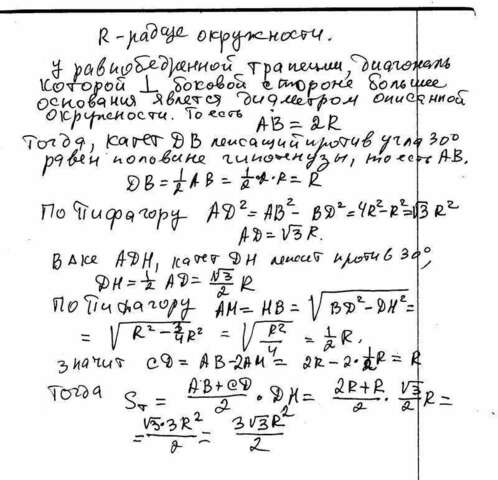 R - радиус окружности.
У равнобедренной трапеции, диагональ
которой ⊥ боковой стороне большее
основания явлется диаметром описанной
окружности. То есть
AB = 2R
Тогда, катет DB лежащий против угла 30°
равен половине гипотенузы, то есть AB.
DB = 1/2 AB = 1/2 · 2 · R = R
По Пифагору AD² = AB² - BD² = 4R² - R² = √3 R²
AD = √3 R.
В ∆ке ADH, катет DH лежит против 30°,
DH = 1/2 AD = √3/2 R
По Пифагору AM = HB = √(BD² - DH²) =
= √(R² - 3/4 R²) = √(R²/4) = 1/2 R.
значит CD = AB - 2AM = 2R - 2 · 1/2 R = R
Тогда Sт = (AB + CD)/2 · DH = (2R + R)/2 · √3/2 R =
= √3 · 3R²/2 = 3√3 R²/2